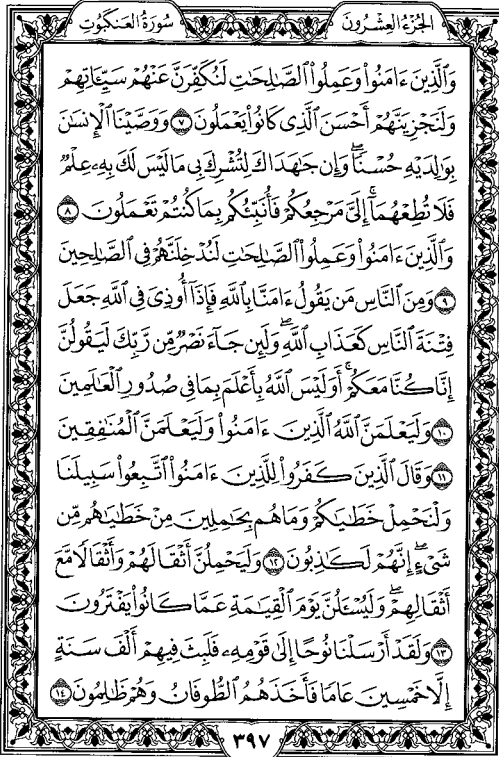 الجزء العشرون سورة العنكبوت
وَٱلَّذِينَ ءَامَنُوا۟ وَعَمِلُوا۟ ٱلصَّـٰلِحَـٰتِ لَنُكَفِّرَنَّ عَنْهُمْ سَيِّـَٔاتِهِمْ
وَلَنَجْزِيَنَّهُمْ أَحْسَنَ ٱلَّذِى كَانُوا۟ يَعْمَلُونَ ٧ وَوَصَّيْنَا ٱلْإِنسَـٰنَ
بِوَٰلِدَيْهِ حُسْنًا ۖ وَإِن جَـٰهَدَاكَ لِتُشْرِكَ بِى مَا لَيْسَ لَكَ بِهِۦ عِلْمٌ
فَلَا تُطِعْهُمَآ ۚ إِلَىَّ مَرْجِعُكُمْ فَأُنَبِّئُكُم بِمَا كُنتُمْ تَعْمَلُونَ ٨
وَٱلَّذِينَ ءَامَنُوا۟ وَعَمِلُوا۟ ٱلصَّـٰلِحَـٰتِ لَنُدْخِلَنَّهُمْ فِى ٱلصَّـٰلِحِينَ
٩ وَمِنَ ٱلنَّاسِ مَن يَقُولُ ءَامَنَّا بِٱللَّهِ فَإِذَآ أُوذِىَ فِى ٱللَّهِ جَعَلَ
فِتْنَةَ ٱلنَّاسِ كَعَذَابِ ٱللَّهِ ۖ وَلَئِن جَآءَ نَصْرٌ مِّن رَّبِّكَ لَيَقُولُنَّ
إِنَّا كُنَّا مَعَكُمْ ۚ أَوَلَيْسَ ٱللَّهُ بِأَعْلَمَ بِمَا فِى صُدُورِ ٱلْعَـٰلَمِينَ
١٠ وَلَيَعْلَمَنَّ ٱللَّهُ ٱلَّذِينَ ءَامَنُوا۟ وَلَيَعْلَمَنَّ ٱلْمُنَـٰفِقِينَ
١١ وَقَالَ ٱلَّذِينَ كَفَرُوا۟ لِلَّذِينَ ءَامَنُوا۟ ٱتَّبِعُوا۟ سَبِيلَنَا
وَلْنَحْمِلْ خَطَـٰيَـٰكُمْ وَمَا هُم بِحَـٰمِلِينَ مِنْ خَطَـٰيَـٰهُم مِّن
شَىْءٍ ۖ إِنَّهُمْ لَكَـٰذِبُونَ ١٢ وَلَيَحْمِلُنَّ أَثْقَالَهُمْ وَأَثْقَالًا مَّعَ
أَثْقَالِهِمْ ۖ وَلَيُسْـَٔلُنَّ يَوْمَ ٱلْقِيَـٰمَةِ عَمَّا كَانُوا۟ يَفْتَرُونَ
١٣ وَلَقَدْ أَرْسَلْنَا نُوحًا إِلَىٰ قَوْمِهِۦ فَلَبِثَ فِيهِمْ أَلْفَ سَنَةٍ
إِلَّا خَمْسِينَ عَامًا فَأَخَذَهُمُ ٱلطُّوفَانُ وَهُمْ ظَـٰلِمُونَ ١٤
٣٩٧